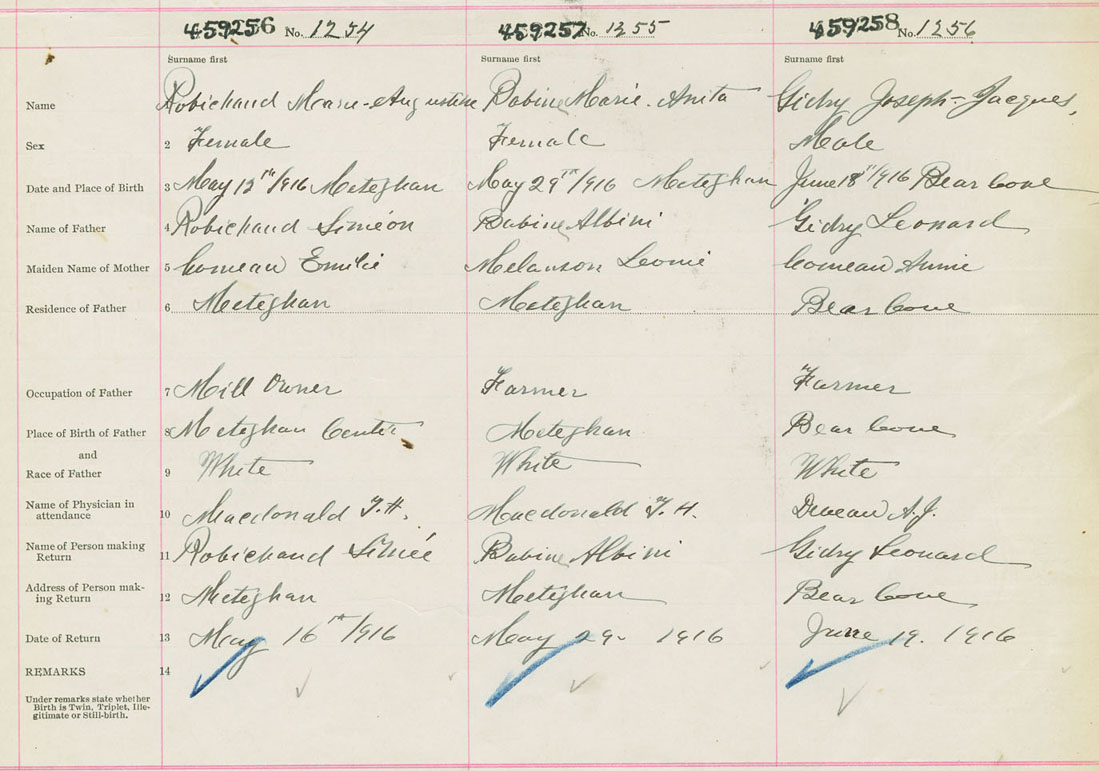 459256 No. 1254 459257 No. 1255 459258 No. 1256
Surname first Surname first Surname first
Name Robichaud Marie-Augustine Babine Marie-Anita Gidry Joseph-Jacques,
Sex 2 Female Female Male
Date and Place of Birth 3 May 12th/1916 Meteghan May 29th/1916 Meteghan June 18th/1916 Bear Cove
Name of Father 4 Robichaud Siméon Babine Albini Gidry Leonard
Maiden Name of Mother 5 Comeau Emilie Melanson Leonie Comeau Annie
Residence of Father 6 Meteghan Meteghan Bear Cove
Occupation of Father 7 Mill Owner Farmer Farmer
Place of Birth of Father 8 Meteghan Center Meteghan Bear Cove
and
Race of Father 9 White White White
Name of Physician in
attendance 10 Macdonald F. H. Macdonald F. H. Deveau A. J.
Name of Person making
Return 11 Robichaud Babine Albini Gidry Leonard
Address of Person mak-
ing Return 12 Meteghan Meteghan Bear Cove
Date of Return 13 May 16th/1916 May 29. 1916 June 19. 1916
REMARKS 14
Under remarks state whether
Birth is Twin, Triplet, Ille-
gitimate or Still-birth.